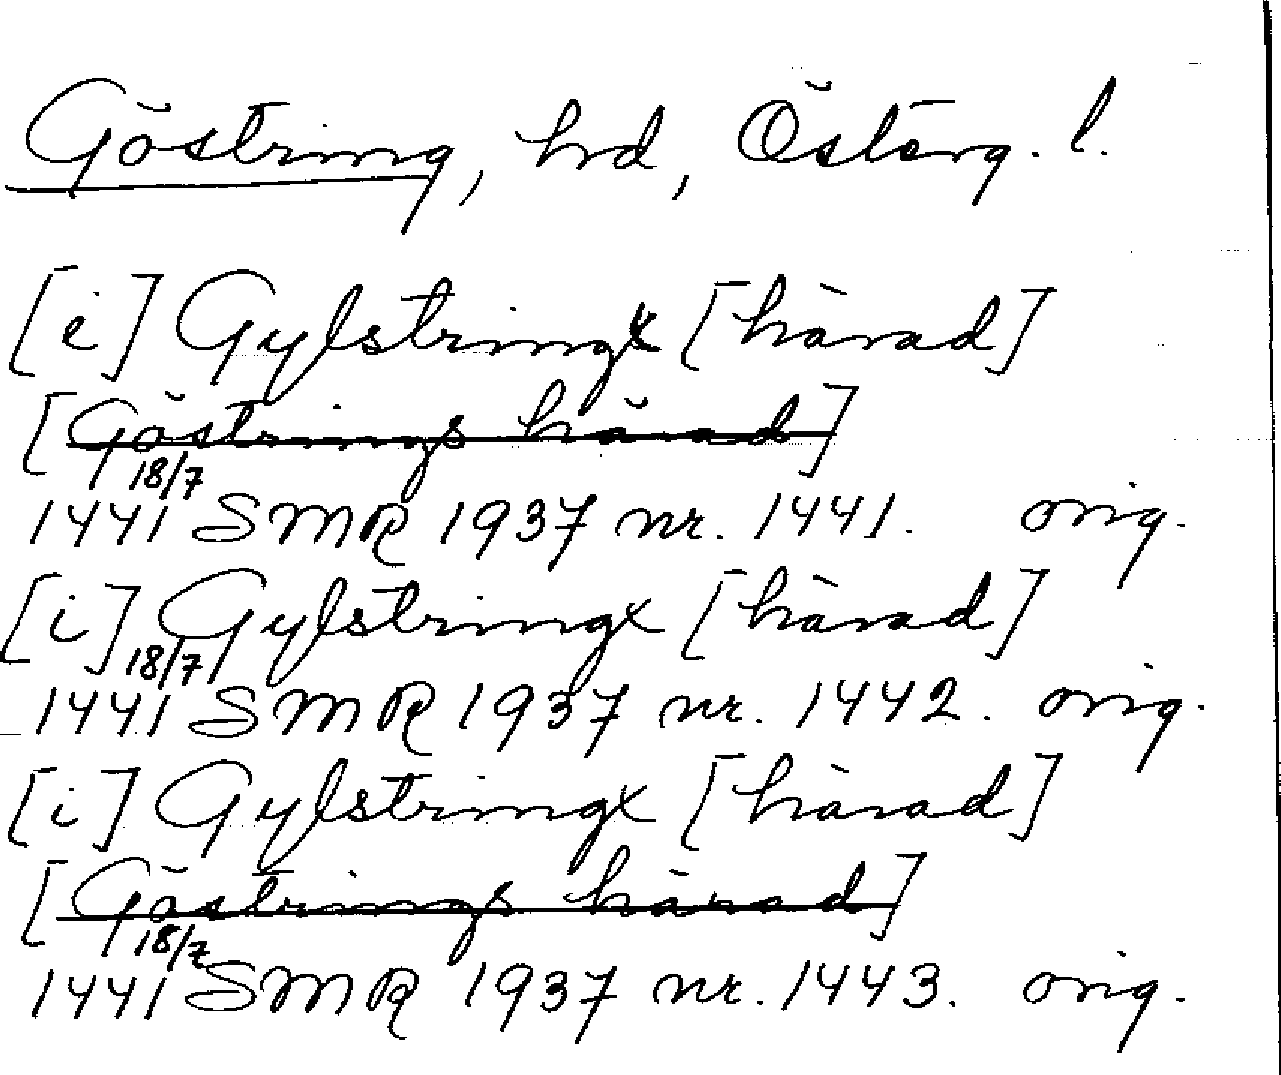 Göstring, hd, Österg. l.
[i] Gylstringx [härad]
[Göstrings härad]
18/7
1441 SMR 1937 nr. 1441. orig.
[i] Gylstringx [härad]
18/7
1441 SMR 1937 nr. 1442. orig.
[i] Gylstringx [härad]
[Göstrings härad]
18/7
1441 SMR 1937 nr. 1443. orig.